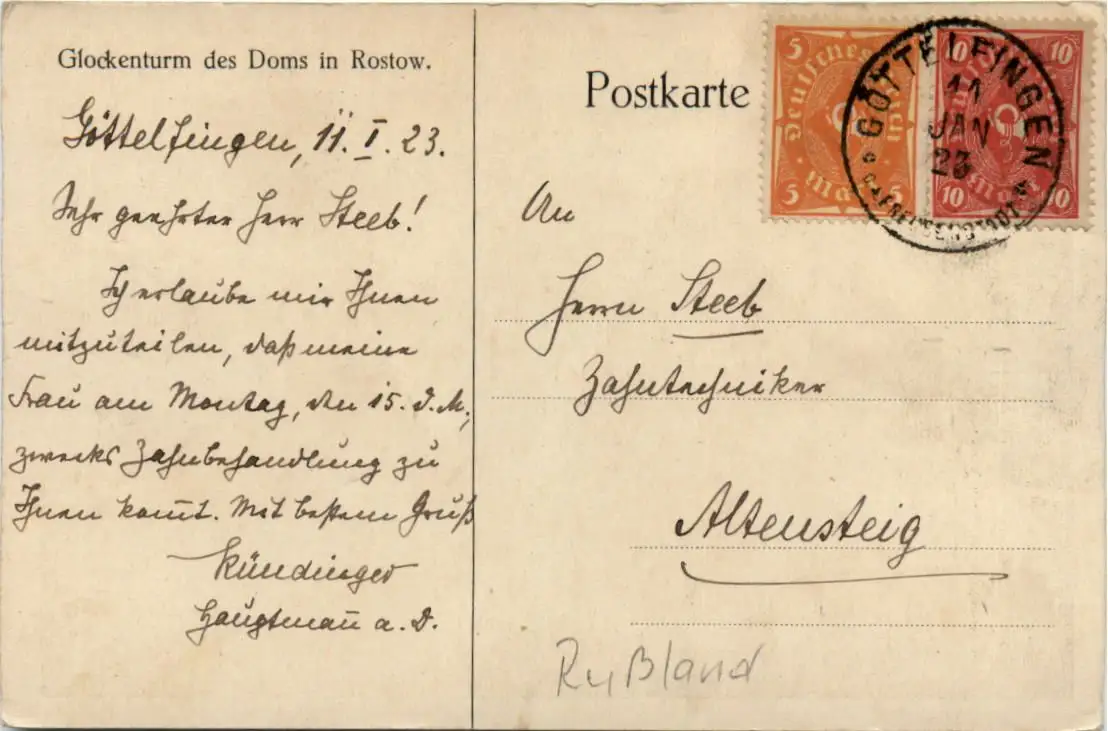 Glockenturm des Doms in Rostow.
Göttelfingen, 11. I. 23.
Sehr geehrter Herr Steeb!
Ich erlaube mir Ihnen
mitzuteilen, daß meine
Frau am Montag, den 15. d. M.,
zwecks Zahnbehandlung zu
Ihnen kom̅t. Mit bestem Gruß
Kündinger
Hauptman̅ a. D.
Postkarte
5 Deutsches Reich 5 Mark 5
10 10 Mark 10
GÖTTELFINGEN
11
JAN
23
An
Herrn Steeb
Zahntechniker
Altensteig
Rußland